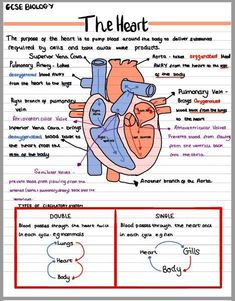 GCSE BIOLOGY
The Heart
The purpose of the heart is to pump blood around the body to deliver substances
required by cells and take away waste products.
Superior Vena Cava
Pulmonary Artery - takes
deoxygenated blood away
from the heart to the lungs
Aorta - takes oxygenated blood
away from the heart to the rest
of the body
Right branch of pulmonary
vein
Pulmonary Vein -
Brings Oxygenated
blood back from the lungs
to the heart
Superior Vena Cava - Brings
deoxygenated blood back to
the heart from the
rest of the body
Atrioventricular Valves
Prevents blood from flowing
from the ventricle back
Another branch of the Aorta.
TYPES OF CIRCULATORY SYSTEM
DOUBLE
Blood passes through the heart twice
in each cycle e.g mammals
Lungs
Heart
Body
SINGLE
Blood passes through the heart once
in each cycle e.g fish
Heart
Gills
Body